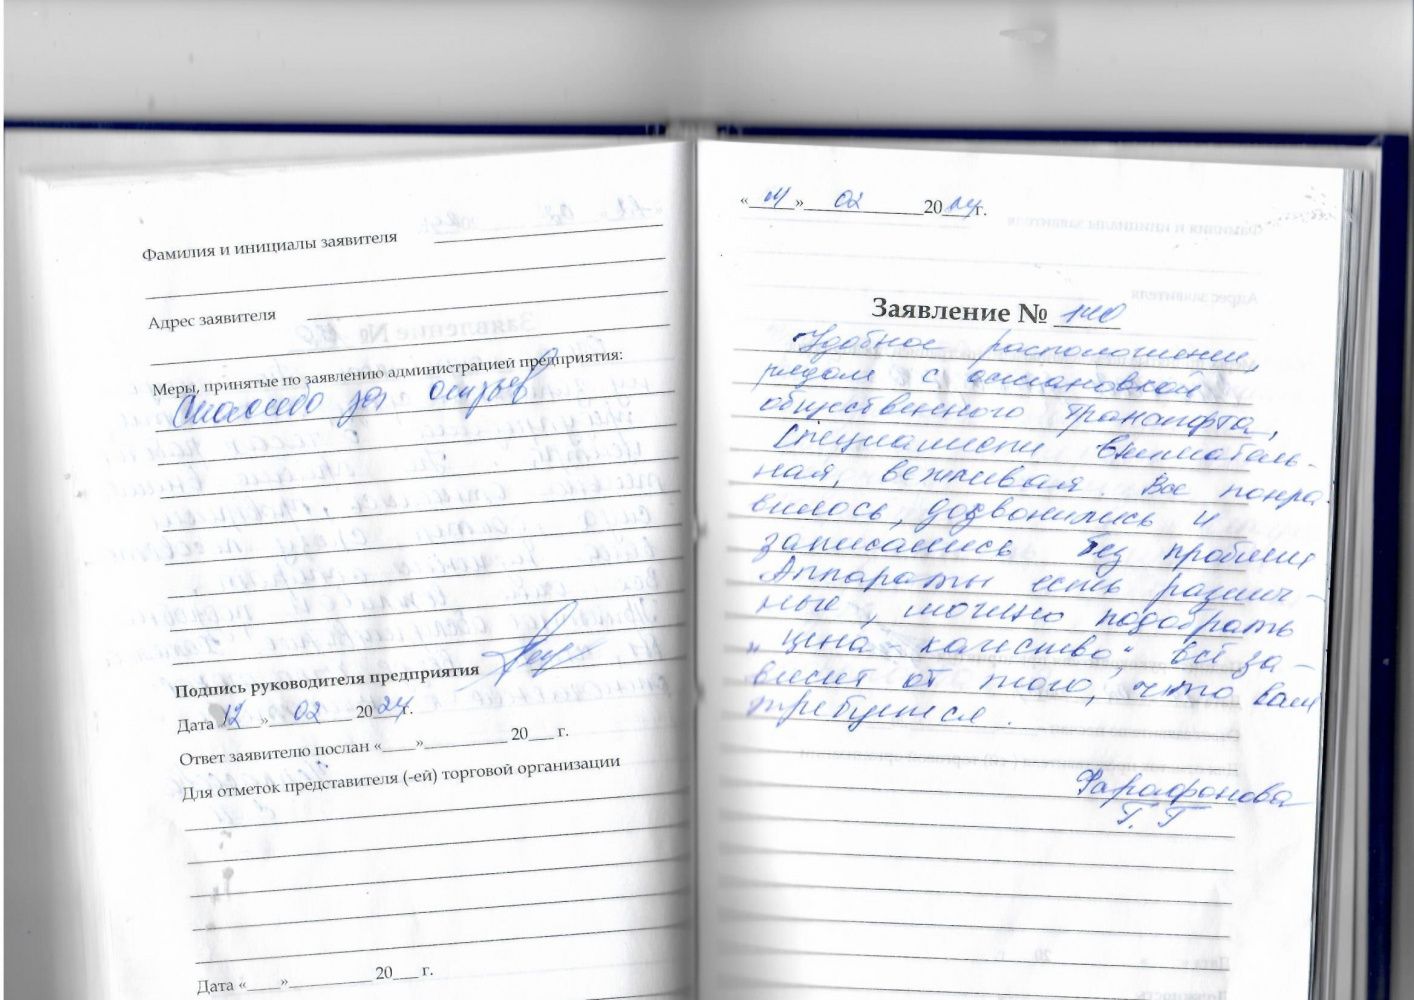 Фамилия и инициалы заявителя
Адрес заявителя
Меры, принятые по заявлению администрацией предприятия:
Спасибо за отзыв
Подпись руководителя предприятия
Дата 12 » 02 2024г.
Ответ заявителю послан «____»__________ 20___ г.
Для отметок представителя (-ей) торговой организации
Дата «____»__________ 20___ г.
«____» 02 2024г.
Заявление № 140
Удобное расположение,
рядом с остановкой
общественного транспорта,
Специалисты вниматель-
ная, вежливая. Все понра-
вилось, дозвонились и
записались без проблем
Аппараты есть различ-
ные, можно подобрать
"цена качество", всё за-
висит от того, что вам
требуется.
Фарафонова
Г. Г